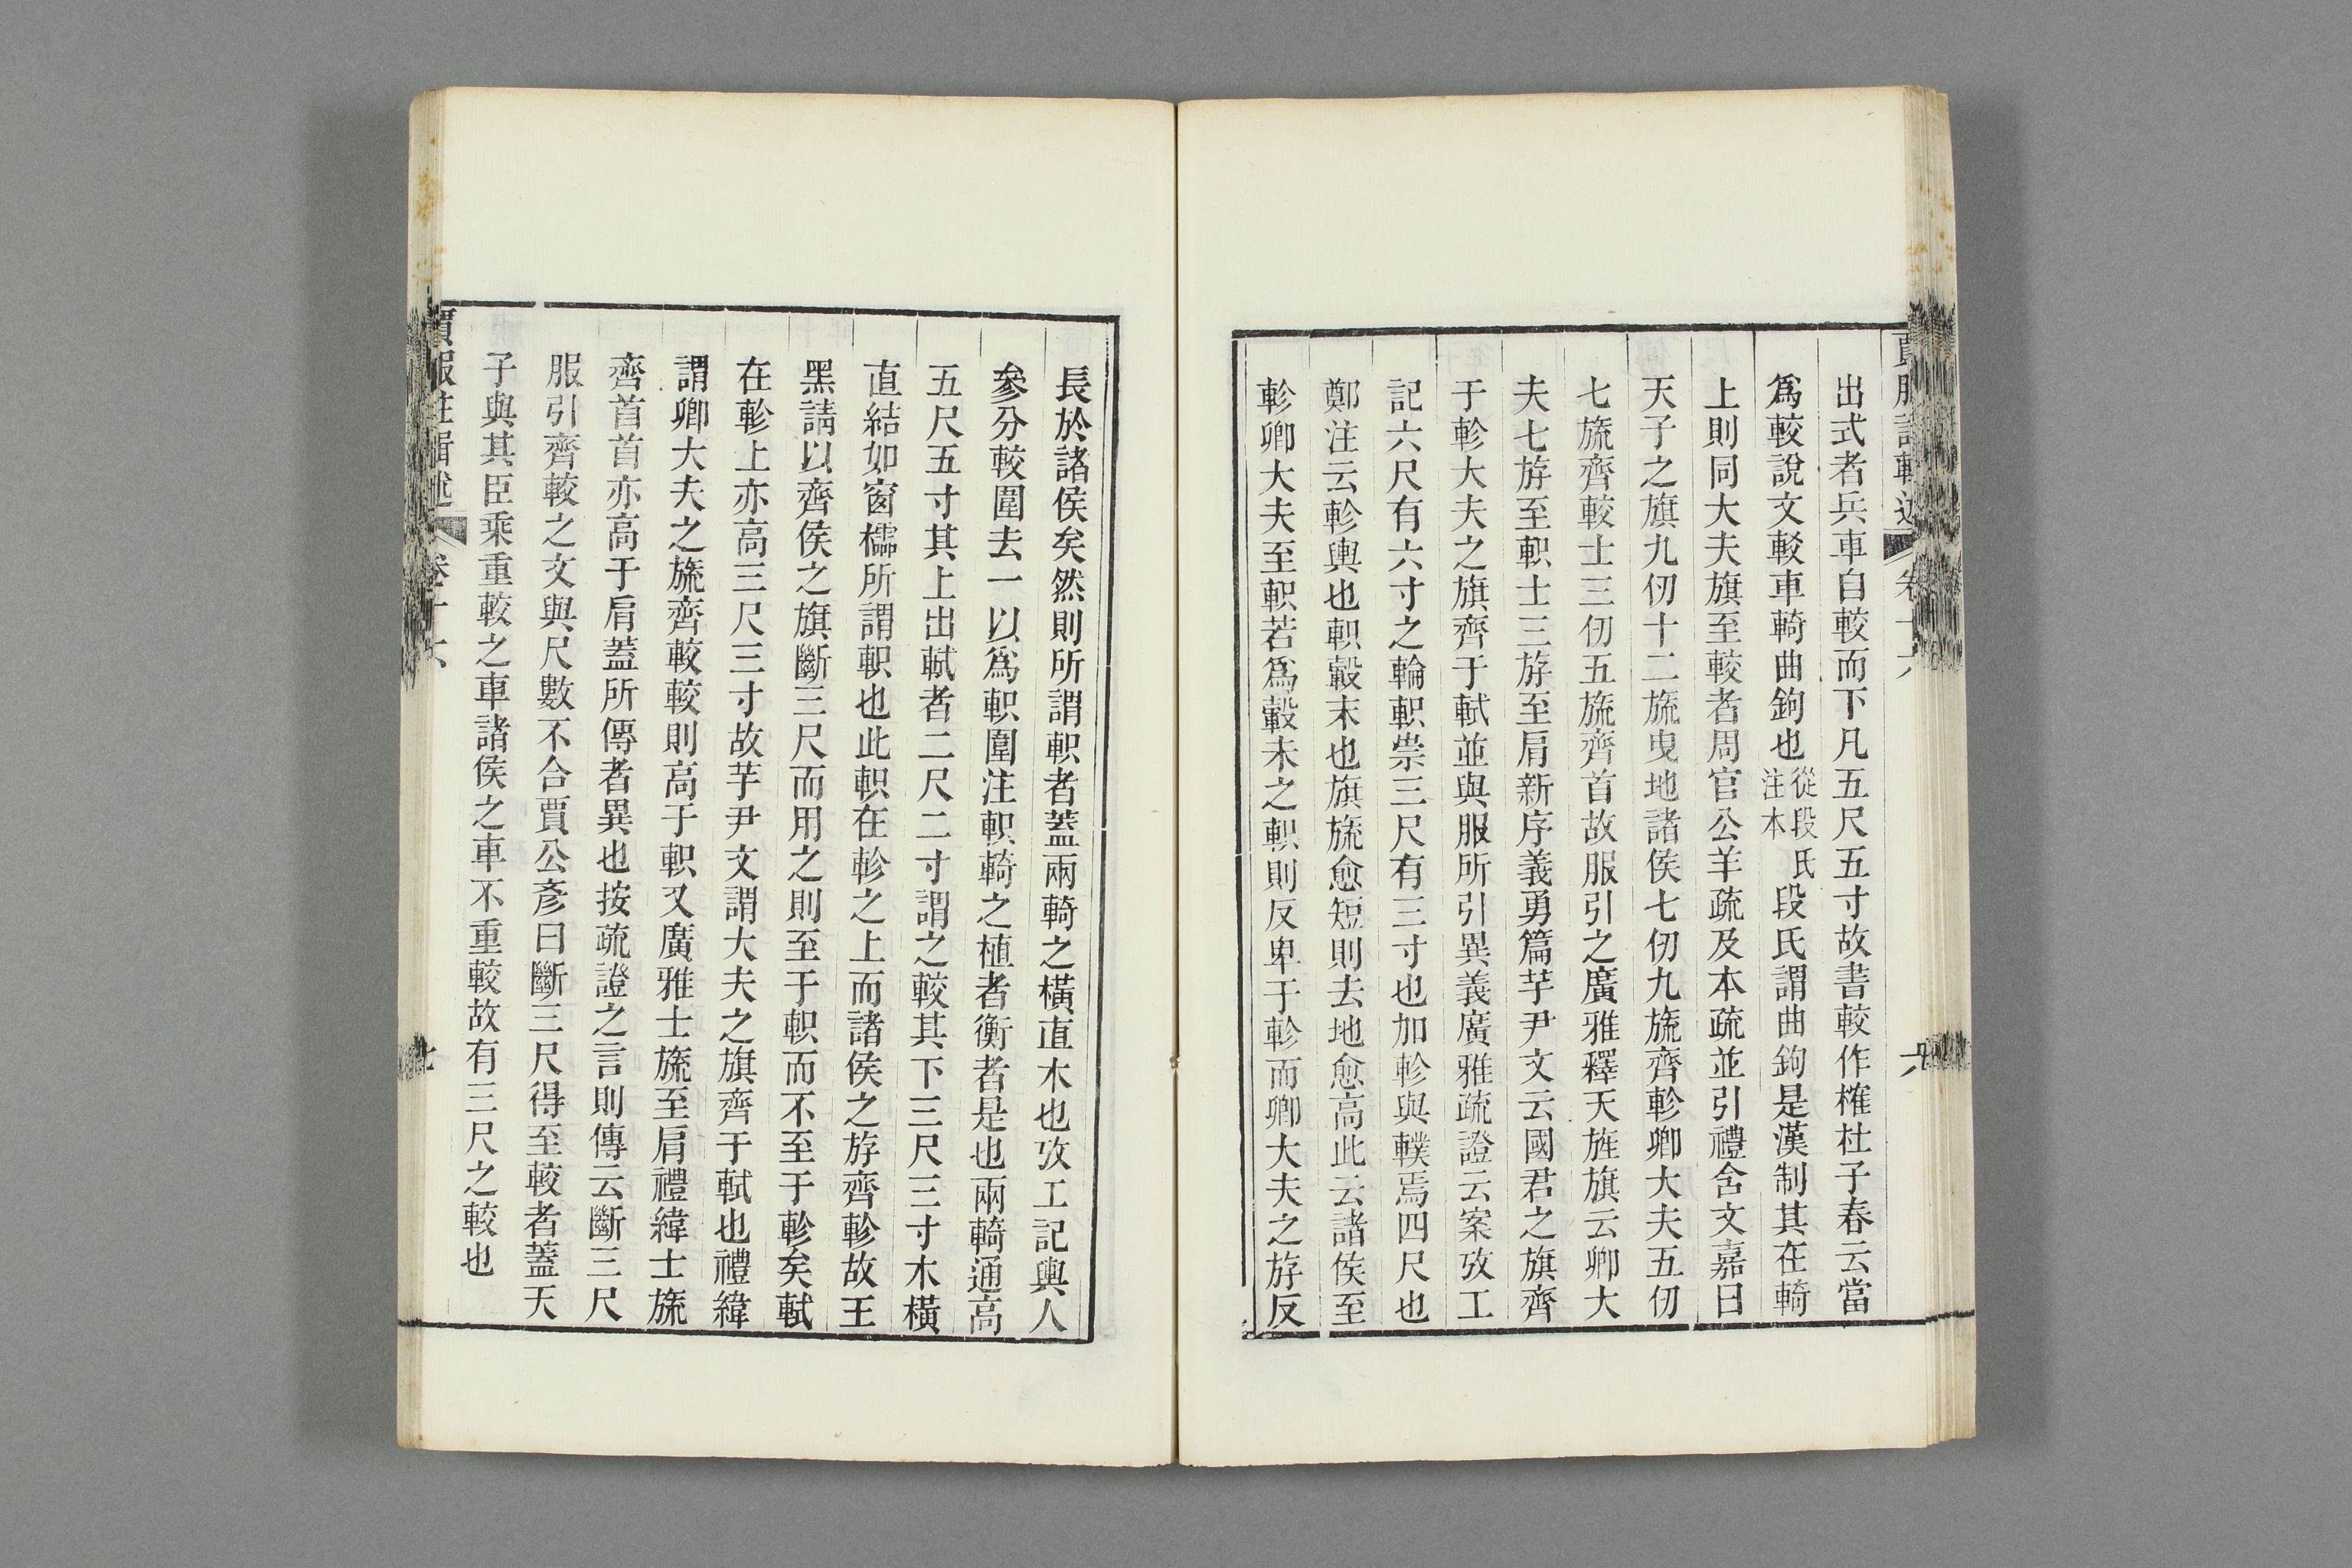 出式者兵車自較而下凡五尺五寸故書較作榷杜子春云當
爲較說文較車輢曲鉤也從段氏注本段氏謂曲鉤是漢制其在輢
上則同大夫旗至較者周官公羊疏及本疏並引禮含文嘉曰
天子之旗九仞十二旒曳地諸侯七仞九旒齊軫卿大夫五仞
七旒齊較士三仞五旒齊首故服引之廣雅釋天旌旗云卿大
夫七斿至軹士三斿至肩新序義勇篇芋尹文云國君之旗齊
于軫大夫之旗齊于軾並與服所引異義廣雅疏證云案攷工
記六尺有六寸之輪軹崇三尺有三寸也加軫與轐焉四尺也
鄭注云軫輿也軹轂末也旗旒愈短則去地愈高此云諸侯至
軫卿大夫至軹若爲轂末之軹則反卑于軫而卿大夫之斿反
長於諸侯矣然則所謂軹者蓋兩輢之橫直木也攷工記輿人
參分較圍去一以爲軹圍注軹輢之植者衡者是也兩輢通高
五尺五寸其上出軾者二尺二寸謂之較其下三尺三寸木橫
直結如窗櫺所謂軹也此軹在軫之上而諸侯之斿齊軫故王
黑請以齊侯之旗斷三尺而用之則至于軹而不至于軫矣軾
在軫上亦高三尺三寸故芋尹文謂大夫之旗齊于軾也禮緯
謂卿大夫之旒齊較較則高于軹又廣雅士旒至肩禮緯士旒
齊首首亦高于肩蓋所傳者異也按疏證之言則傳云斷三尺
服引齊較之文與尺數不合賈公彥曰斷三尺得至較者蓋天
子與其臣乘重較之車諸侯之車不重較故有三尺之較也